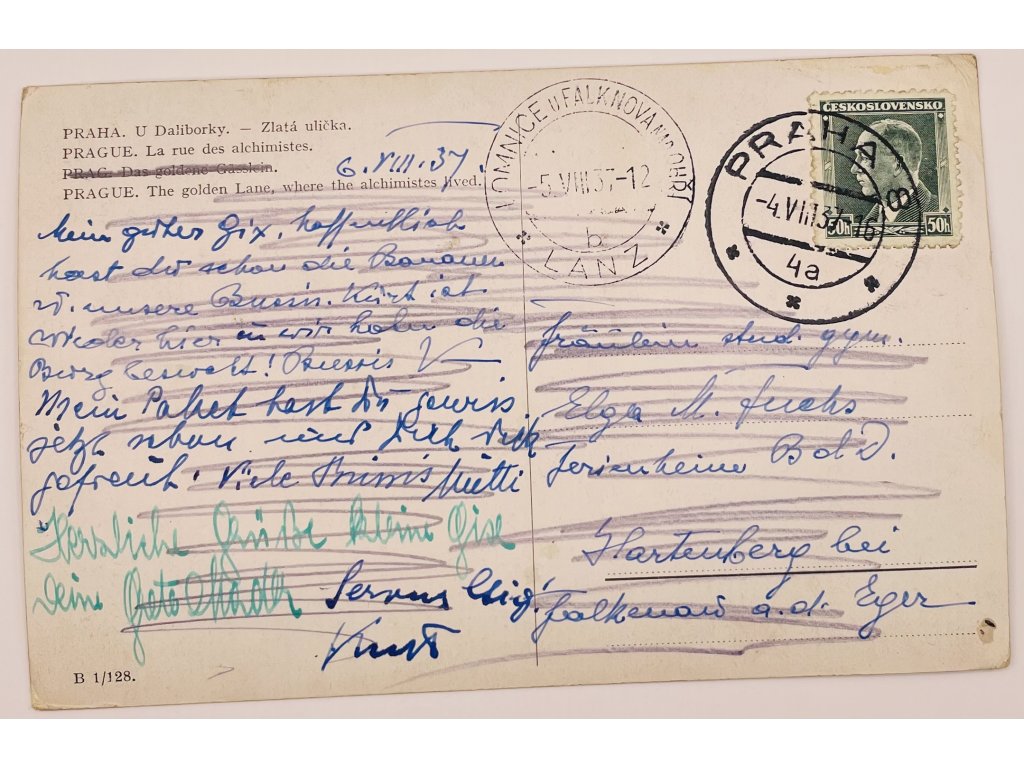 PRAHA. U Daliborky. – Zlatá ulička.
PRAGUE. La rue des alchimistes.
PRAG. Das goldene Gässlein.
PRAGUE. The golden Lane, where the alchimistes lived.
6.VIII.37.
LOMNICE U FALKNOVA NAD OHŘÍ
-5.VIII.37-12
b
LANZ
PRAHA 8
-4.VIII.37-16
4a
ČESKOSLOVENSKO
50h 50h
Mein guter Gix, hoffentlich
hast du schon die Bananen
u. unsere Bussis. Kurt ist
wieder hier u wir haben die
Burg besucht! Bussis V
Mein Paket hast Du gewiss
jetzt schon und Dich sehr
gefreut. Viele Bussis Mutti
Herzliche Grüße kleine Gixe
Deine
Servus
Kurt
Fräulein stud. gym.
Elga M. Fuchs
Ferienheim B d D.
Hartenberg bei
Falkenau a.d. Eger
B 1/128.